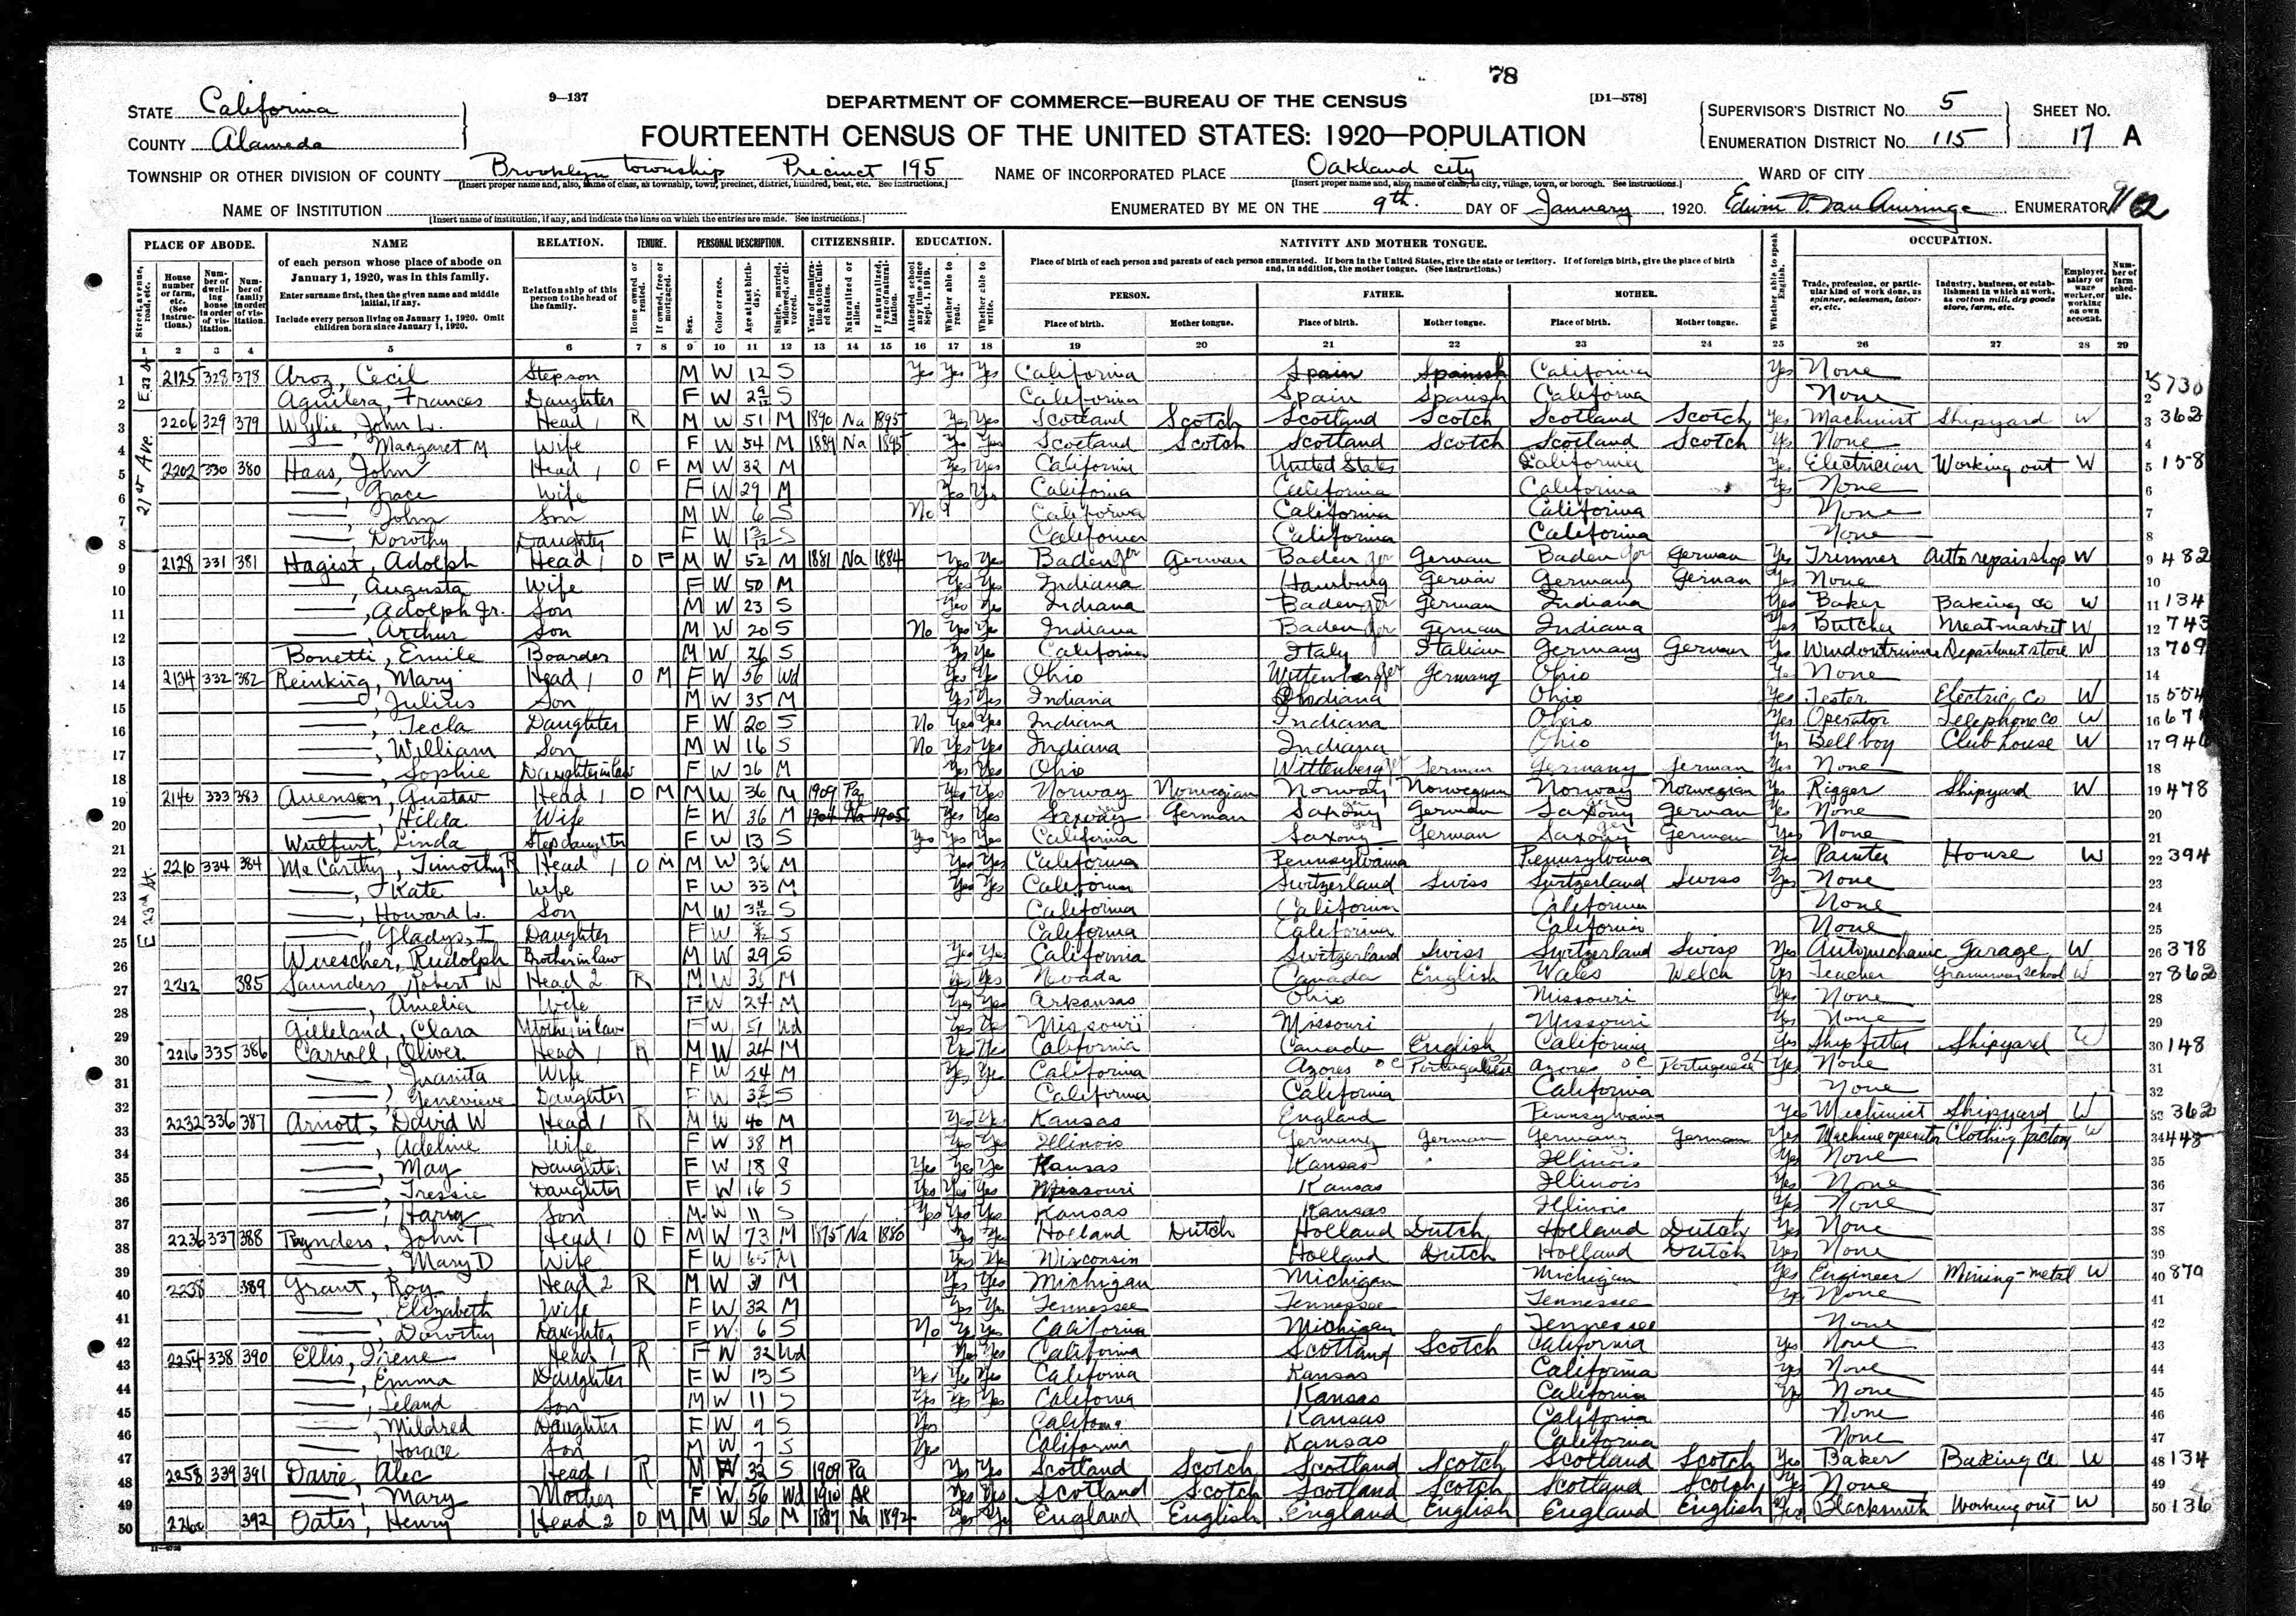 78
STATE California
9—137
DEPARTMENT OF COMMERCE—BUREAU OF THE CENSUS
[D1—578]
SUPERVISOR'S DISTRICT NO. 5
SHEET NO.
COUNTY Alameda
FOURTEENTH CENSUS OF THE UNITED STATES: 1920—POPULATION
ENUMERATION DISTRICT NO. 115
17 A
TOWNSHIP OR OTHER DIVISION OF COUNTY Brooklyn township Precinct 195
NAME OF INCORPORATED PLACE Oakland city
WARD OF CITY
[Insert proper name and, also, name of class, as township, town, precinct, district, hundred, beat, etc. See instructions.]
[Insert proper name and, also, name of class, as city, village, town, or borough. See instructions.]
NAME OF INSTITUTION
[Insert name of institution, if any, and indicate the lines on which the entries are made. See instructions.]
ENUMERATED BY ME ON THE 9th. DAY OF January, 1920. Edwin ENUMERATOR
PLACE OF ABODE. NAME RELATION. TENURE. PERSONAL DESCRIPTION. CITIZENSHIP. EDUCATION. NATIVITY AND MOTHER TONGUE. OCCUPATION.
of each person whose place of abode on January 1, 1920, was in this family.
Enter surname first, then the given name and middle initial, if any.
Include every person living on January 1, 1920. Omit children born since January 1, 1920.
Relationship of this person to the head of the family.
Place of birth of each person and parents of each person enumerated. If born in the United States, give the state or territory. If of foreign birth, give the place of birth and, in addition, the mother tongue. (See instructions.)
PERSON. FATHER. MOTHER.
Place of birth. Mother tongue. Place of birth. Mother tongue. Place of birth. Mother tongue.
1 2 3 4 5 6 7 8 9 10 11 12 13 14 15 16 17 18 19 20 21 22 23 24 25 26 27 28 29
1 2125 328 378 Aroz, Cecil Stepson M W 12 S Yes Yes Yes California Spain Spanish California Yes None
2 Aguilera, Frances Daughter F W S California Spain Spanish California None
3 2206 329 379 Wylie, John L. Head 1 R M W 51 M 1890 Na 1895 Yes Yes Scotland Scotch Scotland Scotch Scotland Scotch Yes Machinist Shipyard W 3 362
4 —, Margaret M Wife F W 54 M 1889 Na 1895 Yes Yes Scotland Scotch Scotland Scotch Scotland Scotch Yes None
5 2202 330 380 Haas, John Head 1 O F M W 32 M Yes Yes California United States California Yes Electrician Working out W 5 158
6 —, Grace Wife F W 29 M Yes Yes California California California Yes None
7 —, John Son M W 6 S No California California California None
8 —, Dorothy Daughter F W S California California California None
9 2128 331 381 Hagist, Adolph Head 1 O F M W 52 M 1881 Na 1884 Yes Yes Baden Ger German Baden Ger German Baden Ger German Yes Trimmer Auto repair shop W 9 482
10 —, Augusta Wife F W 50 M Yes Yes Indiana Hamburg German Germany German Yes None
11 —, Adolph Jr. Son M W 23 S Yes Yes Indiana Baden Ger German Indiana Yes Baker Baking Co W 11 134
12 —, Arthur Son M W 20 S No Yes Yes Indiana Baden Ger German Indiana Yes Butcher Meat market W 12 743
13 Bonetti, Emile Boarder M W 26 S Yes Yes California Italy Italian Germany German Yes Window trimmer Department store W 13 709
14 2134 332 382 Reinking, Mary Head 1 O M F W 56 Wd Yes Yes Ohio Wittenberg Ger Germany Ohio Yes None
15 —, Julius Son M W 35 M Yes Yes Indiana Indiana Ohio Yes Tester Electric Co W 15 554
16 —, Tecla Daughter F W 20 S No Yes Yes Indiana Indiana Ohio Yes Operator Telephone Co W 16 671
17 —, William Son M W 16 S No Yes Yes Indiana Indiana Ohio Yes Bell boy Club house W 17
18 —, Sophie Daughter in law F W 26 M Yes Yes Ohio Wittenberg Ger German Germany German Yes None
19 2140 333 383 Avenson, Gustav Head 1 O M M W 36 M 1909 Pa Yes Yes Norway Norwegian Norway Norwegian Norway Norwegian Yes Rigger Shipyard W 19 478
20 —, Hilda Wife F W 36 M 1904 Na 1905 Yes Yes Saxony German Saxony Ger German Saxony Ger German Yes None
21 Linda Stepdaughter F W 13 S Yes Yes Yes California Saxony German Saxony Ger German Yes None
22 2210 334 384 McCarthy, Timothy Head 1 O M M W 36 M Yes Yes California Pennsylvania Pennsylvania Yes Painter House W 22 394
23 —, Kate Wife F W 33 M Yes Yes California Switzerland Swiss Switzerland Swiss Yes None
24 —, Howard L. Son M W S California California California None
25 —, Gladys, I Daughter F W S California California California None
26 Wuescher, Rudolph Brother in law M W 29 S Yes Yes California Switzerland Swiss Switzerland Swiss Yes Auto mechanic Garage W 26 378
27 2212 385 Saunders, Robert W Head 2 R M W 35 M Yes Yes Nevada Canada English Wales Welch Yes Teacher Grammar school W 27 862
28 —, Amelia Wife F W 24 M Yes Yes Arkansas Ohio Missouri Yes None
29 Gilleland, Clara Mother in law F W 51 Wd Yes Yes Missouri Missouri Missouri Yes None
30 2216 335 386 Carroll, Oliver Head 1 R M W 24 M Yes Yes California Canada English California Yes Ship fitter Shipyard W 30 148
31 —, Juanita Wife F W 24 M Yes Yes California Azores Portuguese Azores Portuguese Yes None
32 —, Genevieve Daughter F W S California California California None
33 2232 336 387 Arnott, David W Head 1 R M W 40 M Yes Yes Kansas England Pennsylvania Yes Machinist Shipyard W 33 362
34 —, Adeline Wife F W 38 M Yes Yes Illinois Germany German Germany German Yes Machine operator Clothing factory W 34 448
35 —, May Daughter F W 18 S Yes Yes Yes Kansas Kansas Illinois Yes None
36 —, Tressie Daughter F W 16 S Yes Yes Yes Missouri Kansas Illinois Yes None
37 —, Harry Son M W 11 S Yes Yes Yes Kansas Kansas Illinois Yes None
38 2236 337 388 Rynders, John T Head 1 O F M W 73 M 1875 Na 1886 Yes Yes Holland Dutch Holland Dutch Holland Dutch Yes None
39 —, Mary D Wife F W 65 M Yes Yes Wisconsin Holland Dutch Holland Dutch Yes None
40 2238 389 Grant, Roy Head 2 R M W 31 M Yes Yes Michigan Michigan Michigan Yes Engineer Mining-metal W 40 870
41 —, Elizabeth Wife F W 32 M Yes Yes Tennessee Tennessee Tennessee Yes None
42 —, Dorothy Daughter F W 6 S No California Michigan Tennessee None
43 2254 338 390 Ellis, Irene Head 1 R F W 32 Wd Yes Yes California Scotland Scotch California Yes None
44 —, Emma Daughter F W 13 S Yes Yes Yes California Kansas California Yes None
45 —, Leland Son M W 11 S Yes Yes Yes California Kansas California Yes None
46 —, Mildred Daughter F W 9 S Yes California Kansas California None
47 —, Horace Son M W 7 S Yes California Kansas California None
48 2258 339 391 Davie, Alec Head 1 R M W 32 S 1909 Pa Yes Yes Scotland Scotch Scotland Scotch Scotland Scotch Yes Baker Baking Co W 48 134
49 —, Mary Mother F W 56 Wd 1910 Al Yes Yes Scotland Scotch Scotland Scotch Scotland Scotch Yes None
50 2260 392 Oates, Henry Head 2 O M M W 56 M 1887 Na 1892 Yes Yes England English England English England English Yes Blacksmith Working out W 50 136